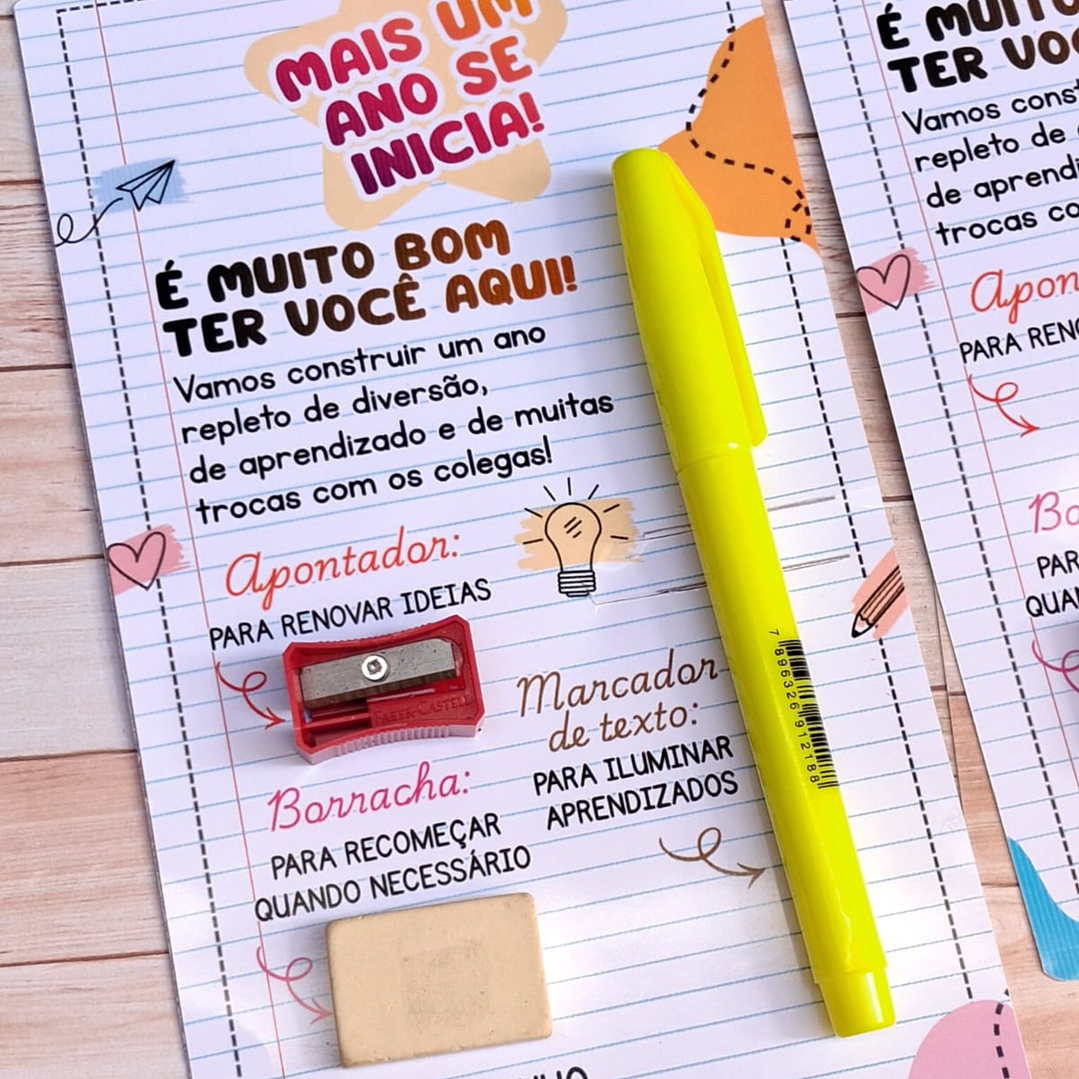 MAIS UM
ANO SE
INICIA!
É MUITO BOM
TER VOCÊ AQUI!
Vamos construir um ano
repleto de diversão,
de aprendizado e de muitas
trocas com os colegas!
Apontador:
PARA RENOVAR IDEIAS
FABER-CASTELL
Marcador
de texto:
PARA ILUMINAR
APRENDIZADOS
Borracha:
PARA RECOMEÇAR
QUANDO NECESSÁRIO
7 896326 912188
É MUITO
TER
Vamos
repleto de
de
trocas
PARA